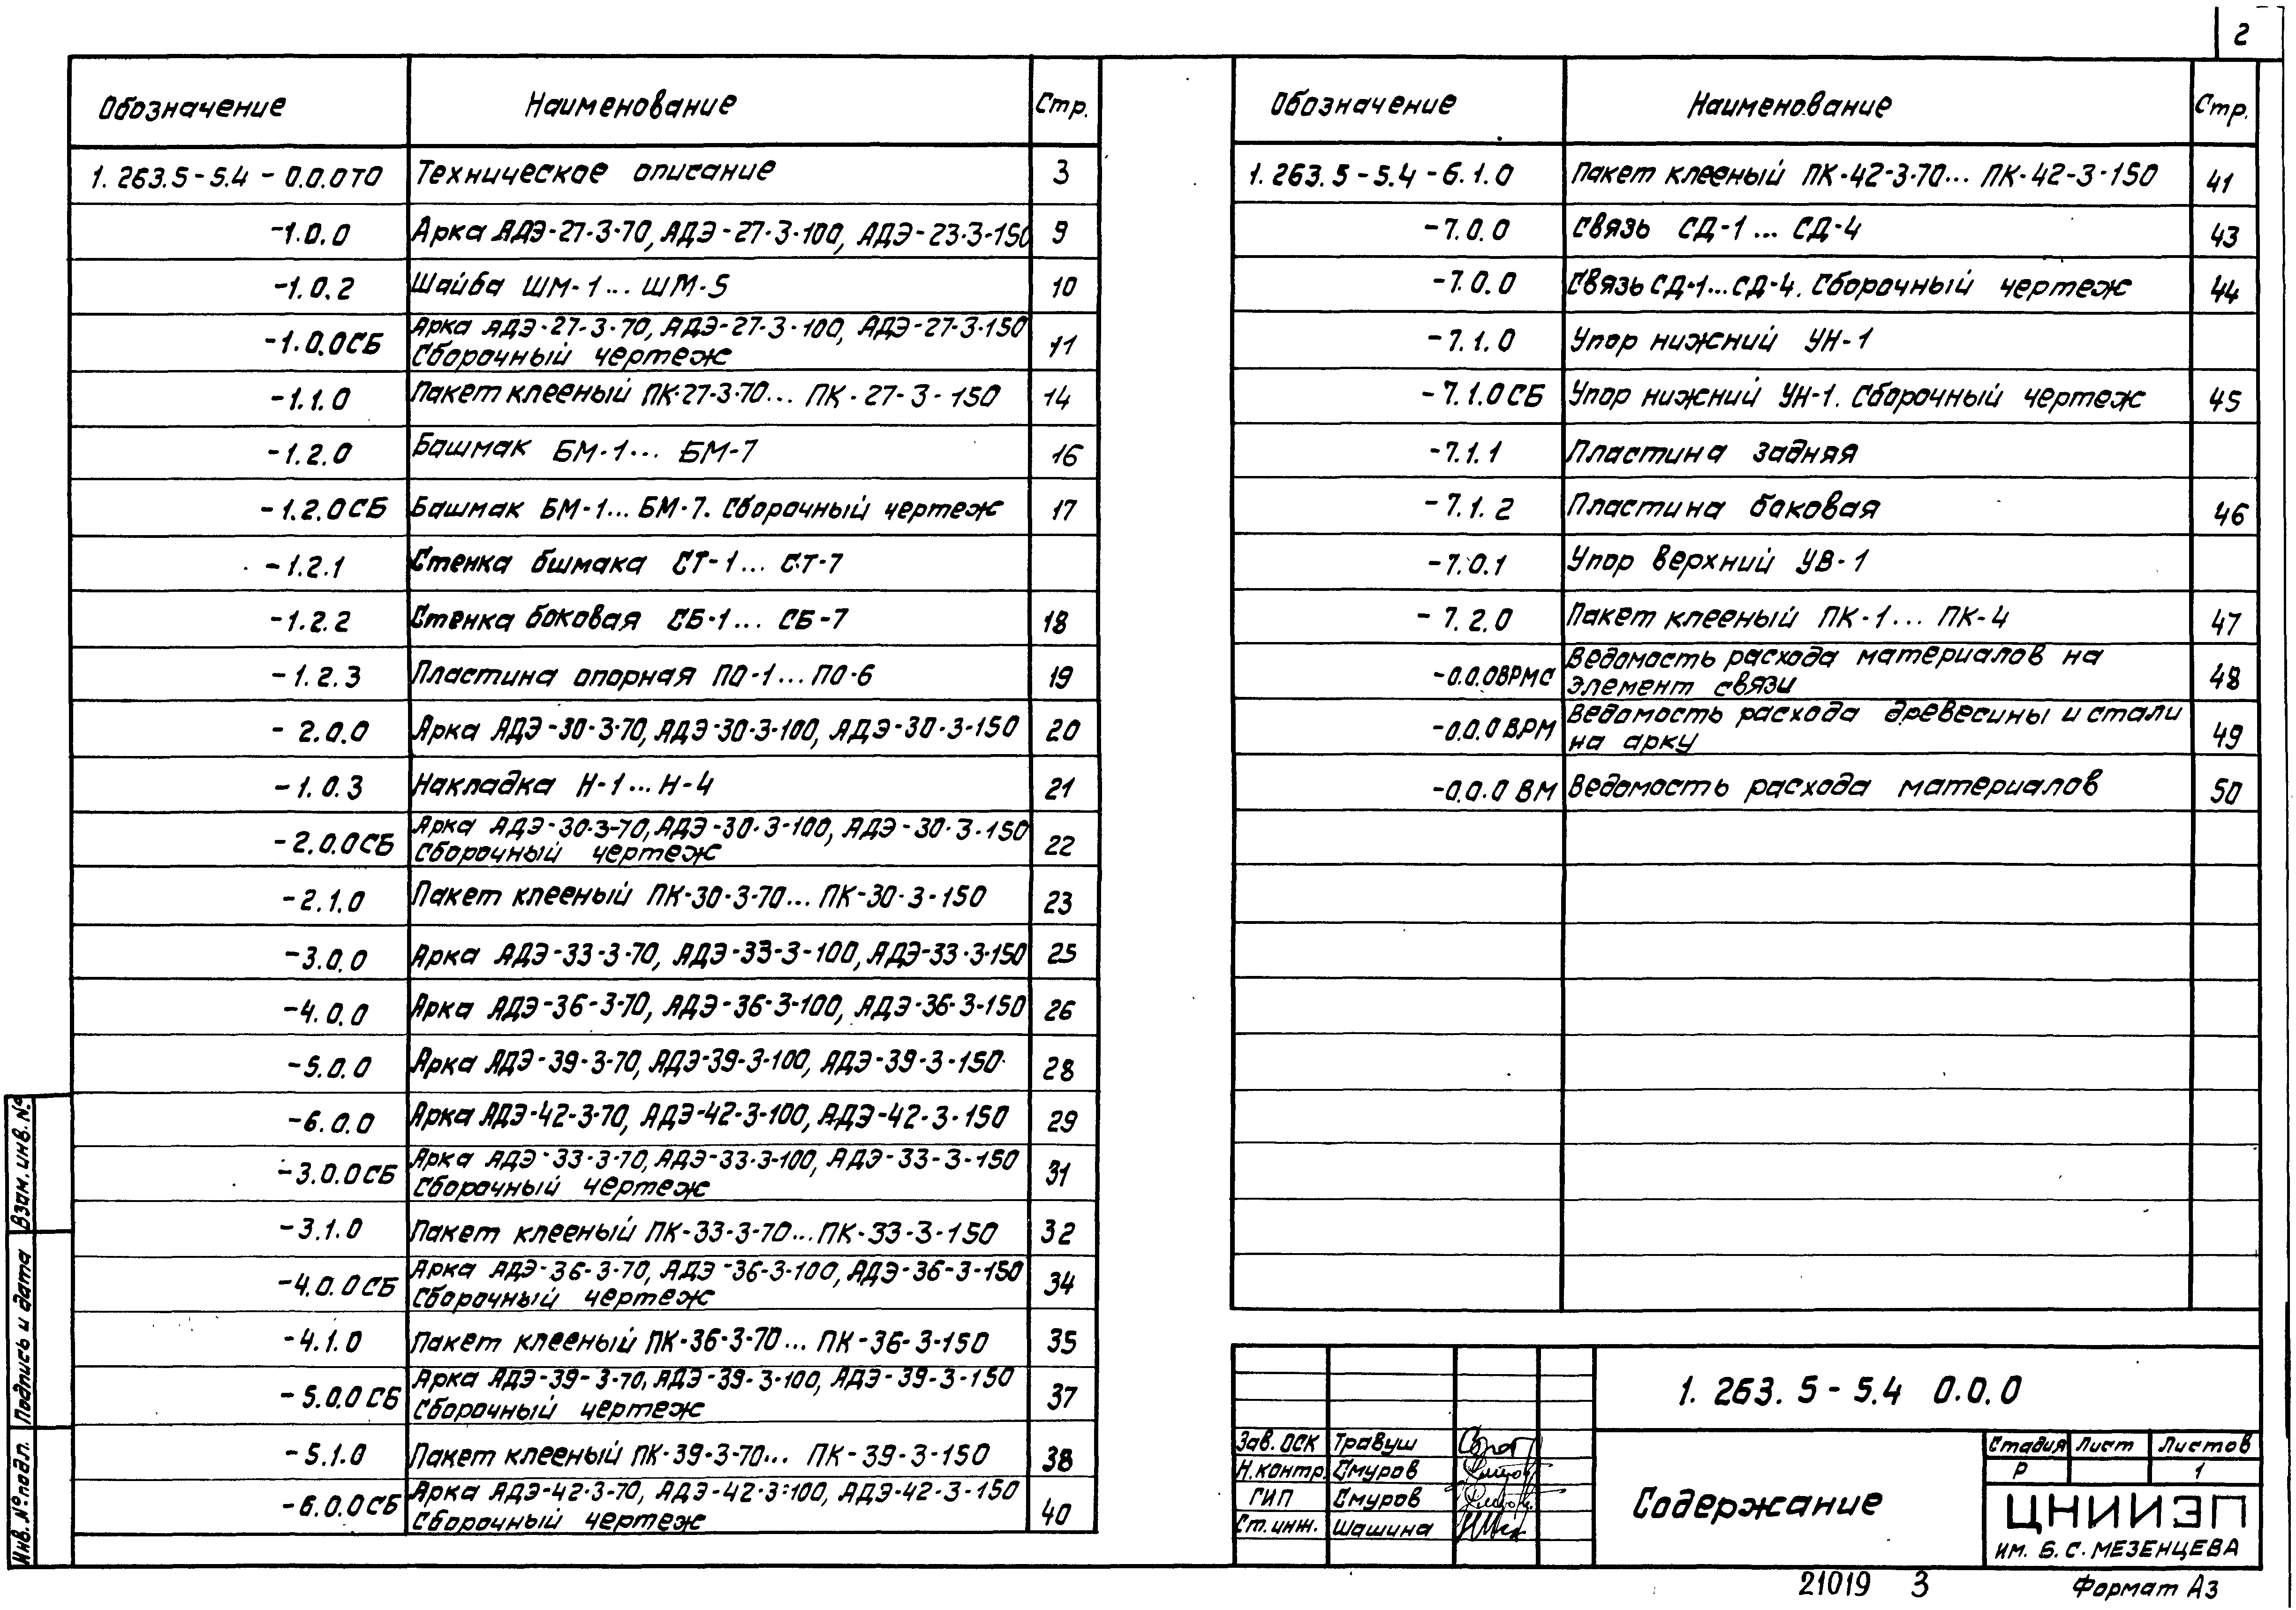 2
Обозначение Наименование Стр.
1.263.5-5.4-0.0.0ТО Техническое описание 3
-1.0.0 Арка АДЭ-27-3-70, АДЭ-27-3-100, АДЭ-23-3-150 9
-1.0.2 Шайба ШМ-1...ШМ-5 10
-1.0.0СБ Арка АДЭ-27-3-70, АДЭ-27-3-100, АДЭ-27-3-150
Сборочный чертеж 11
-1.1.0 Пакет клееный ПК-27-3-70... ПК-27-3-150 14
-1.2.0 Башмак БМ-1... БМ-7 16
-1.2.0СБ Башмак БМ-1... БМ-7. Сборочный чертеж 17
-1.2.1 Стенка бшмака СТ-1... СТ-7
-1.2.2 Стенка боковая СБ-1... СБ-7 18
-1.2.3 Пластина опорная ПО-1...ПО-6 19
-2.0.0 Арка АДЭ-30-3-70, АДЭ-30-3-100, АДЭ-30-3-150 20
-1.0.3 Накладка Н-1...Н-4 21
-2.0.0СБ Арка АДЭ-30-3-70, АДЭ-30-3-100, АДЭ-30-3-150
Сборочный чертеж 22
-2.1.0 Пакет клееный ПК-30-3-70... ПК-30-3-150 23
-3.0.0 Арка АДЭ-33-3-70, АДЭ-33-3-100, АДЭ-33-3-150 25
-4.0.0 Арка АДЭ-36-3-70, АДЭ-36-3-100, АДЭ-36-3-150 26
-5.0.0 Арка АДЭ-39-3-70, АДЭ-39-3-100, АДЭ-39-3-150 28
-6.0.0 Арка АДЭ-42-3-70, АДЭ-42-3-100, АДЭ-42-3-150 29
-3.0.0СБ Арка АДЭ-33-3-70, АДЭ-33-3-100, АДЭ-33-3-150
Сборочный чертеж 31
-3.1.0 Пакет клееный ПК-33-3-70...ПК-33-3-150 32
-4.0.0СБ Арка АДЭ-36-3-70, АДЭ-36-3-100, АДЭ-36-3-150
Сборочный чертеж 34
-4.1.0 Пакет клееный ПК-36-3-70... ПК-36-3-150 35
-5.0.0СБ Арка АДЭ-39-3-70, АДЭ-39-3-100, АДЭ-39-3-150
Сборочный чертеж 37
-5.1.0 Пакет клееный ПК-39-3-70... ПК-39-3-150 38
-6.0.0СБ Арка АДЭ-42-3-70, АДЭ-42-3-100, АДЭ-42-3-150
Сборочный чертеж 40
Обозначение Наименование Стр.
1.263.5-5.4-6.1.0 Пакет клееный ПК-42-3-70... ПК-42-3-150 41
-7.0.0 Связь СД-1... СД-4 43
-7.0.0 Связь СД-1...СД-4. Сборочный чертеж 44
-7.1.0 Упор нижний УН-1
-7.1.0СБ Упор нижний УН-1. Сборочный чертеж 45
-7.1.1 Пластина задняя
-7.1.2 Пластина боковая 46
-7.0.1 Упор верхний УВ-1
-7.2.0 Пакет клееный ПК-1... ПК-4 47
-0.0.0ВРМС Ведомость расхода материалов на
элемент связи 48
-0.0.0ВРМ Ведомость расхода древесины и стали
на арку 49
-0.0.0ВМ Ведомость расхода материалов 50
Взам. инв. №
Подпись и дата
Инв. № подл.
1.263.5-5.4 0.0.0
Зав. ОСК Травуш
Н.контр. Смуров
ГИП Смуров
Ст. инж. Шашина
Содержание
Стадия Лист Листов
Р 1
ЦНИИЭП
им. Б.С. МЕЗЕНЦЕВА
21019 3
Формат А3